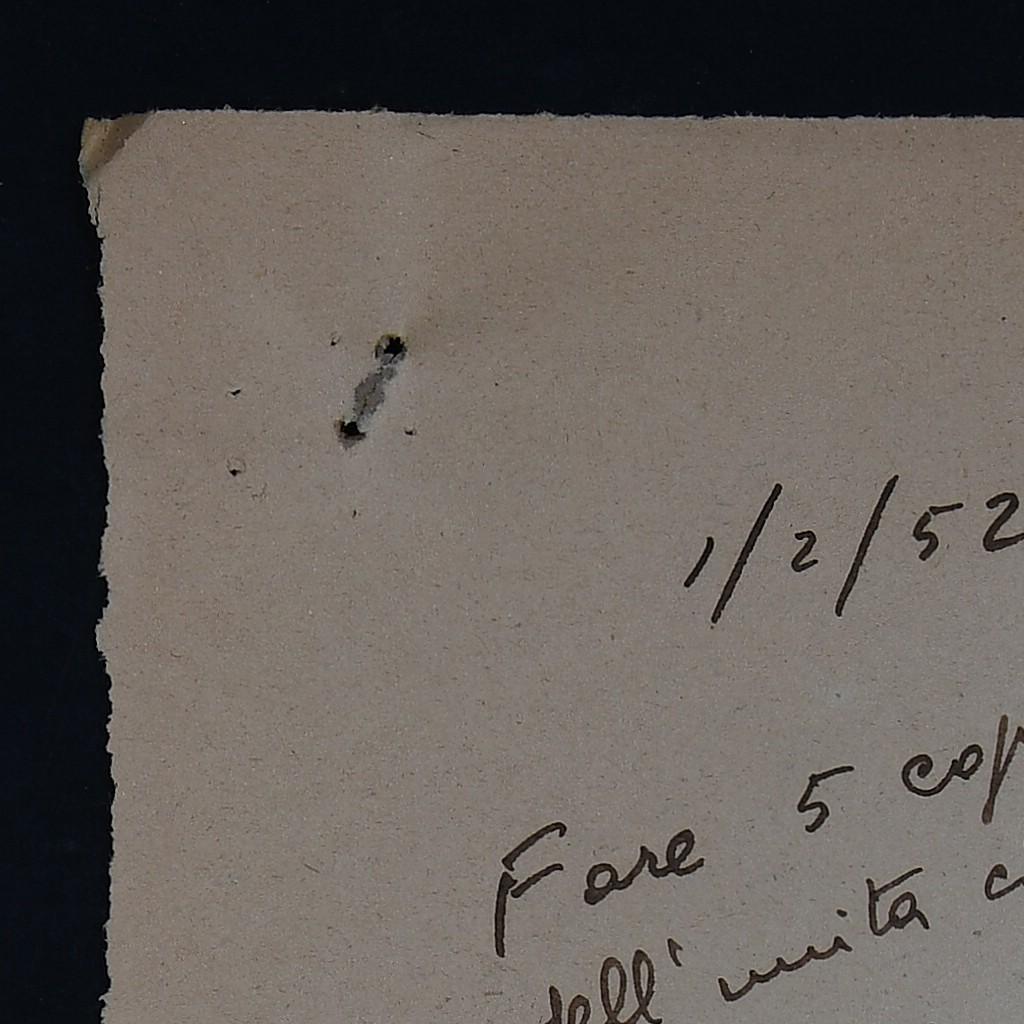 1/2/52
Fare 5 cop
dell'unita c